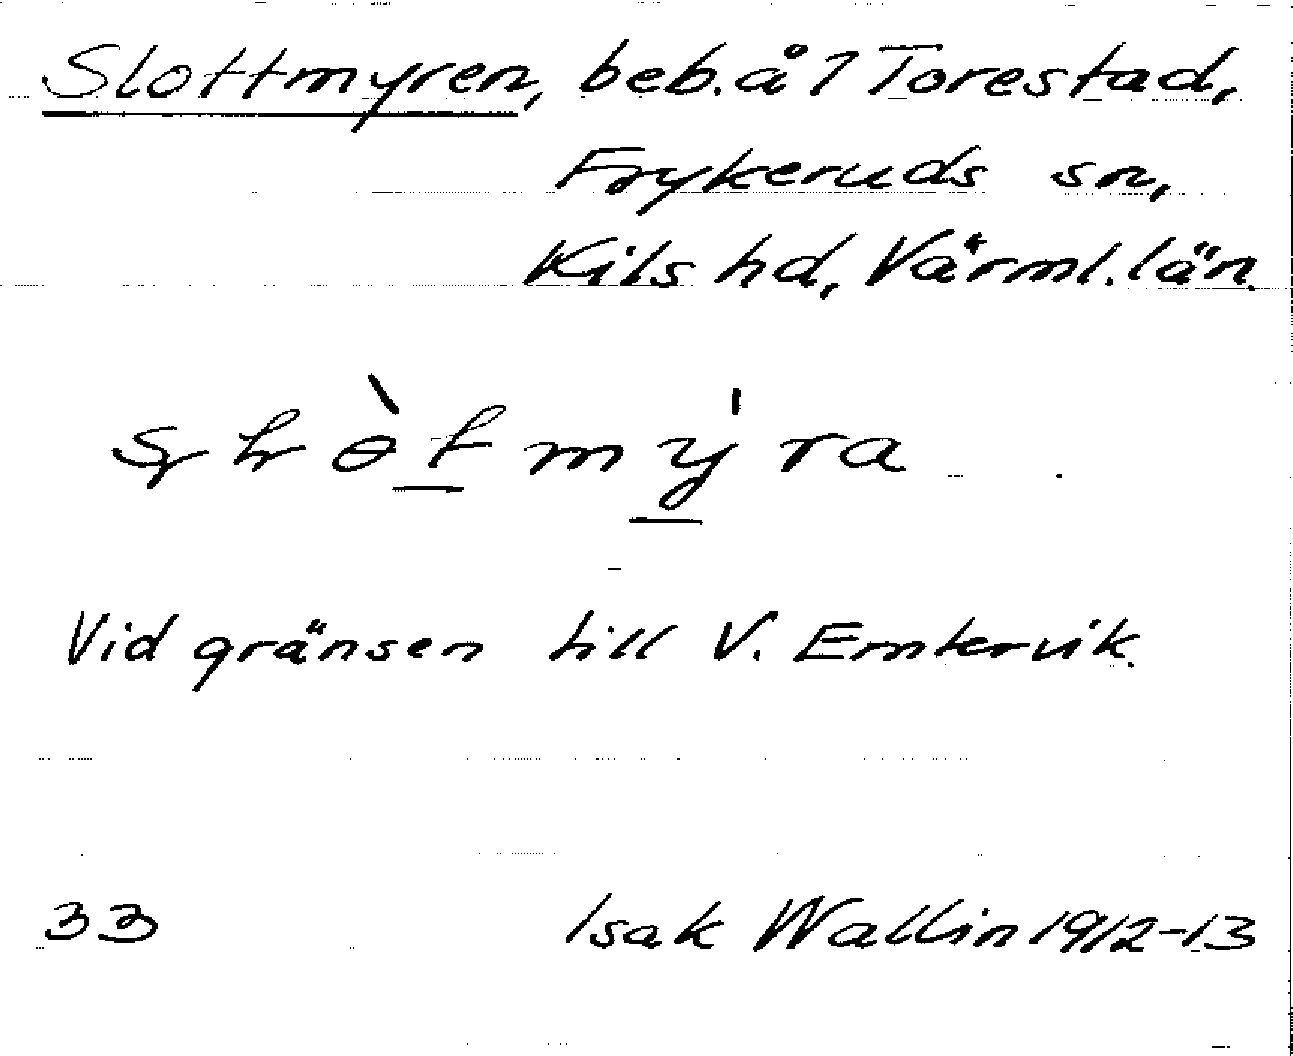 Slottmyren, beb. å 7 Torestad,
Frykeruds sn,
Kils hd, Värml. län.
Vid gränsen till V. Emtervik.
33 Isak Wallin 1912-13